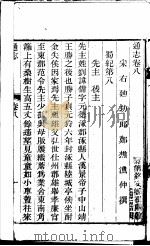 通志卷八
宋右迪功郎鄭樵漁仲撰
蜀紀第八
先主 後主
先主姓劉諱備字元德涿郡涿縣人漢景帝子中山靖
王勝之後也勝子貞元狩六年封涿縣陸城亭侯坐酎
金失侯因家焉先主祖雄父弘世仕州郡雄舉孝廉官
至東郡范令先主少孤與母販履織席為業舍東南角
籬上有桑樹生高五丈餘遙望見童童如小車蓋往來